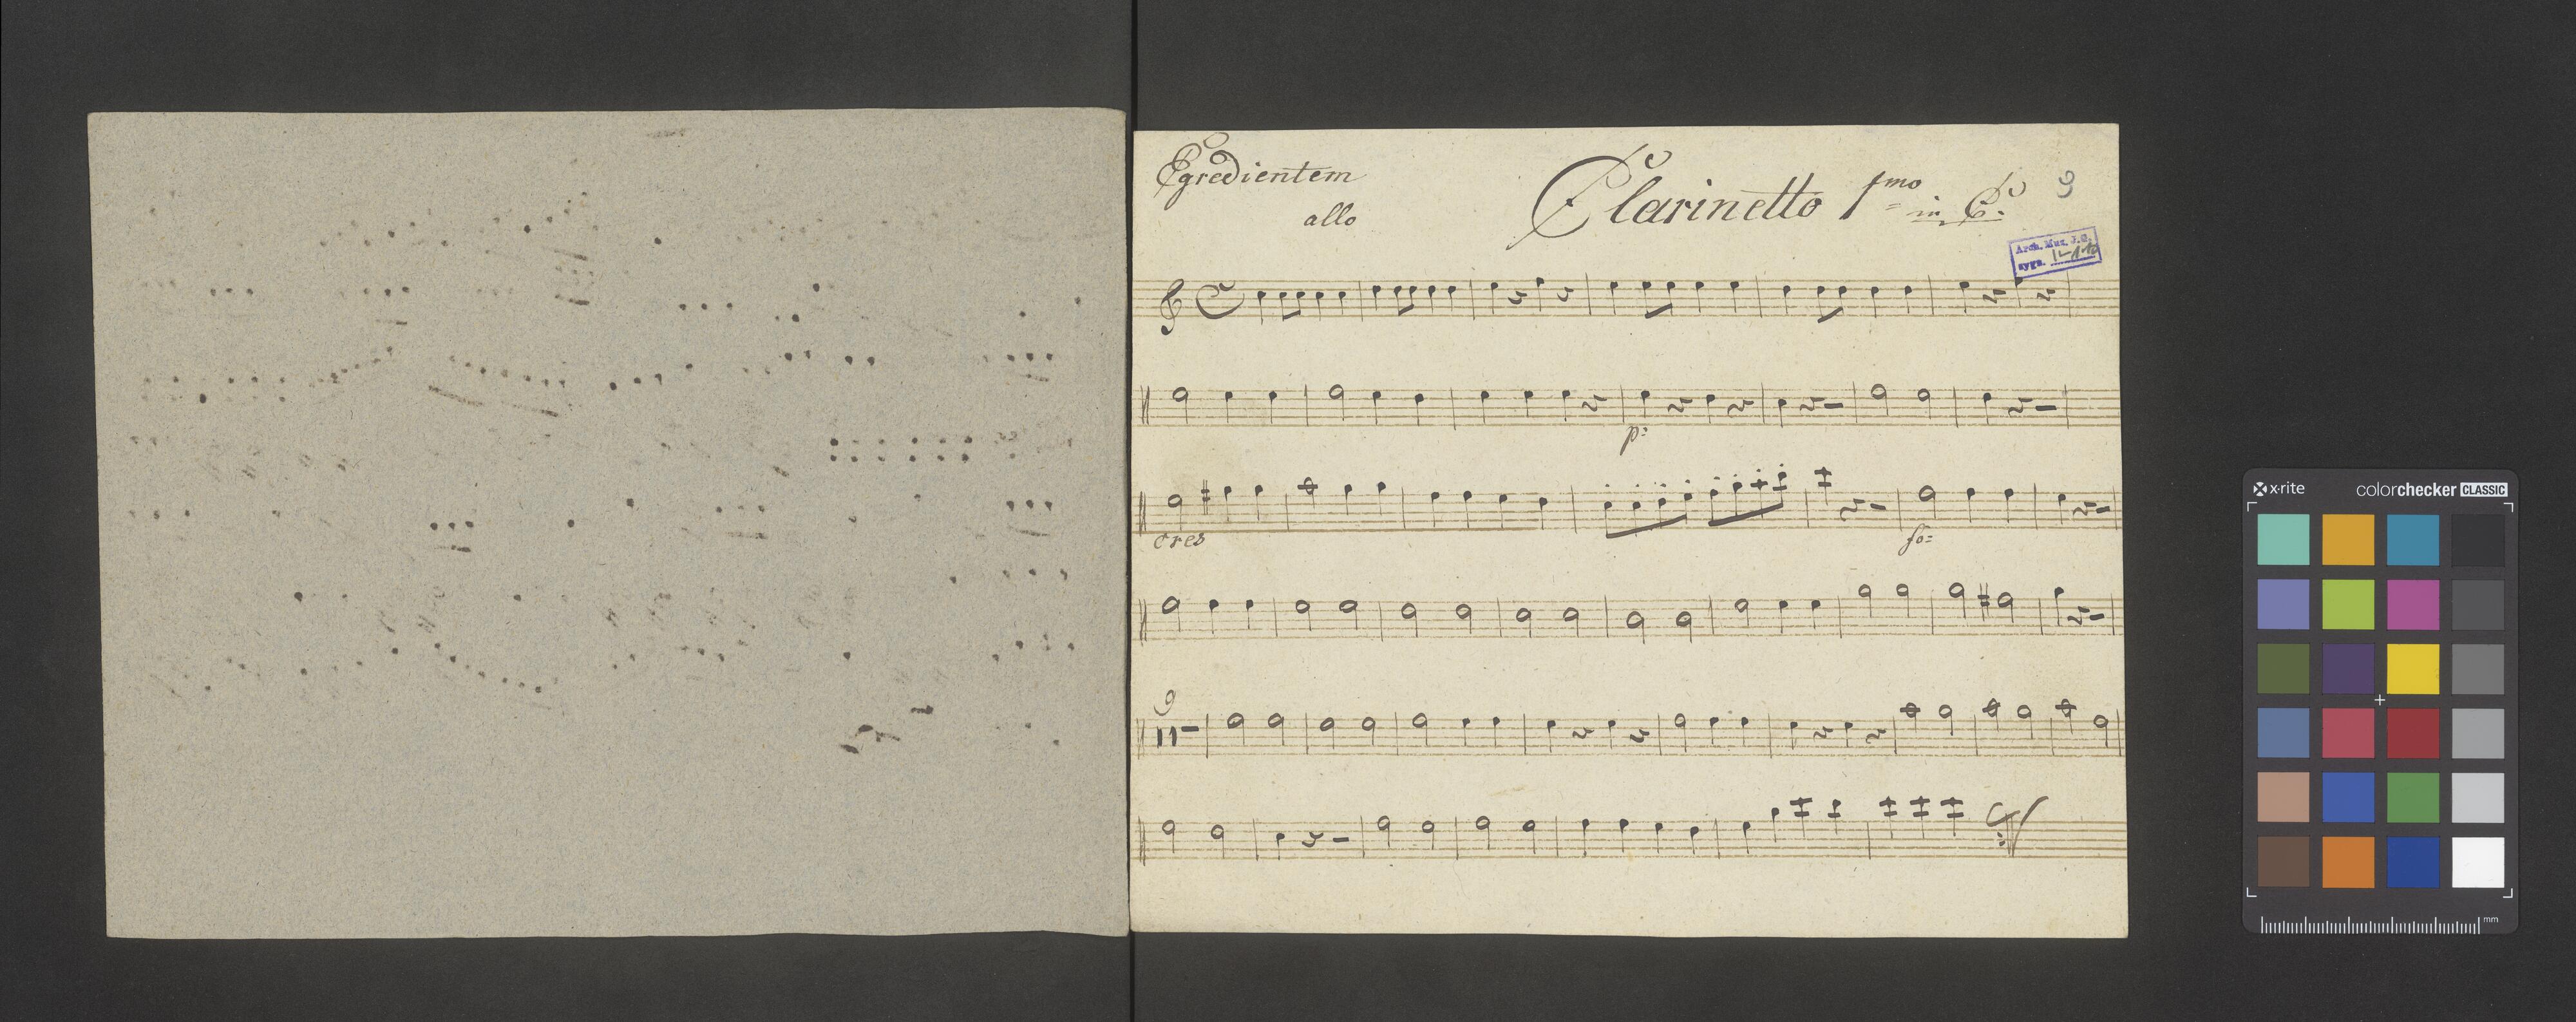 Egredientem
allo
Clarinetto 1mo in C.
9
Arch. Muz. J.G.
sygn.
p:
cres
fo:
9
x-rite
colorchecker CLASSIC
mm